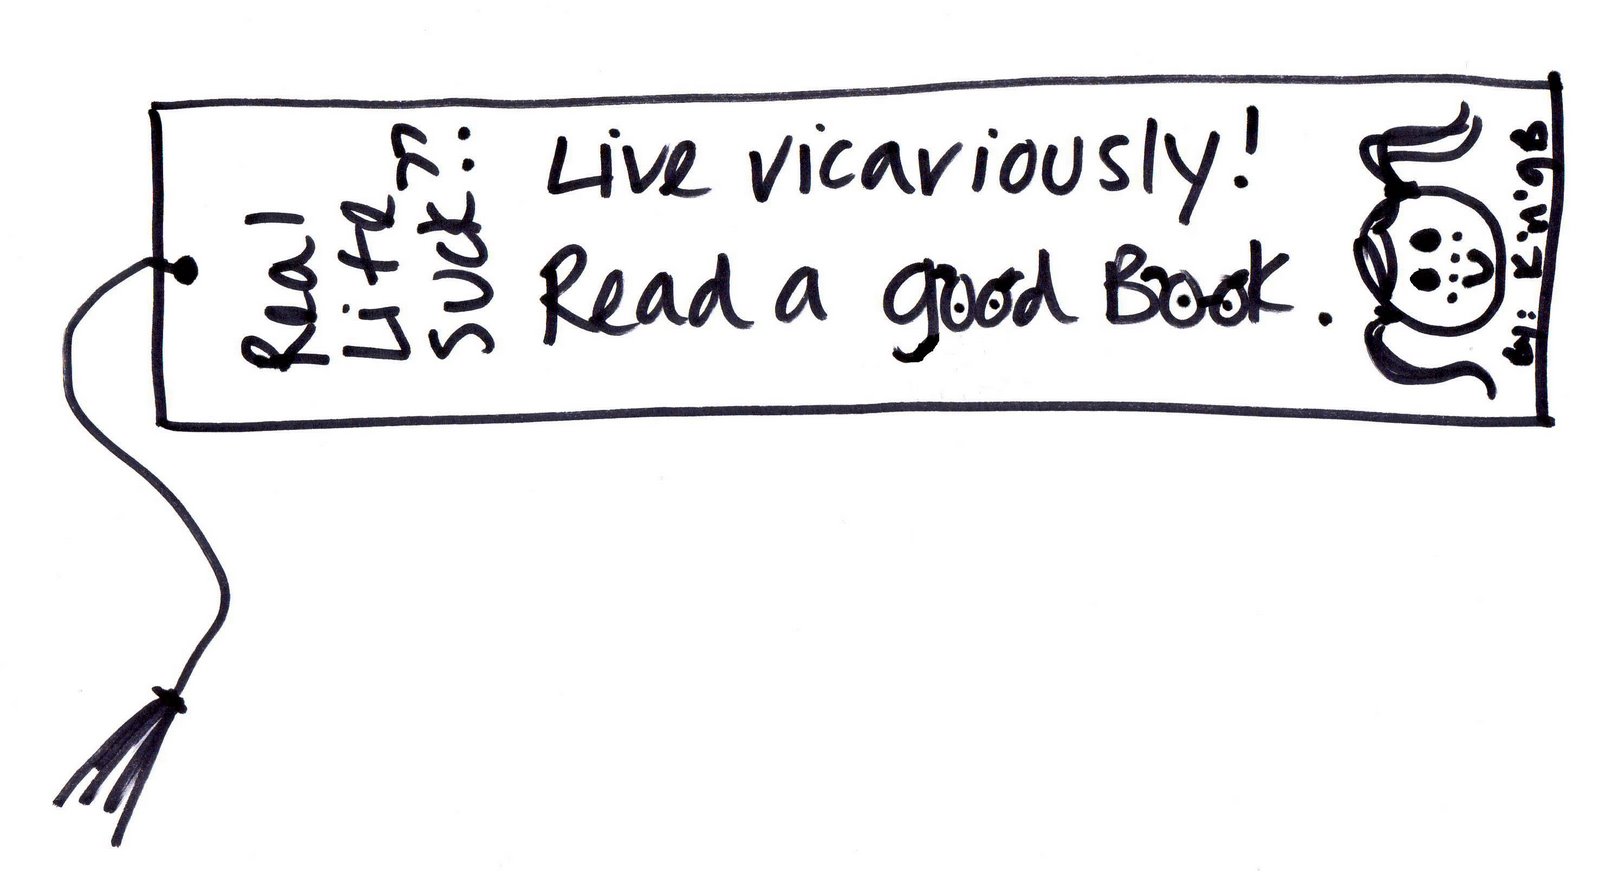 Real
Life
Suck??
Live vicariously!
Read a good Book.
by: